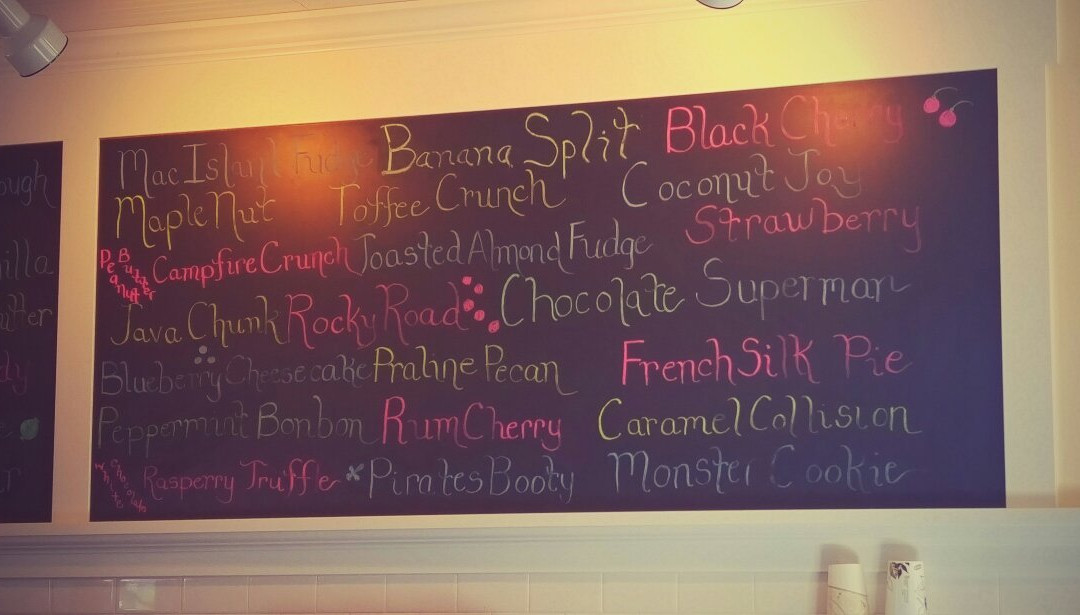 ough
illa
utter
dy
e
r
Mac Island Fudge Banana Split Black Cherry
Maple Nut Toffee Crunch Coconut Joy
Peanut Butter Campfire Crunch Toasted Almond Fudge Strawberry
Java Chunk Rocky Road Chocolate Superman
Blueberry Cheesecake Praline Pecan French Silk Pie
Peppermint Bonbon Rum Cherry Caramel Collision
White Chocolate Rasperry Truffle Pirates Booty Monster Cookie